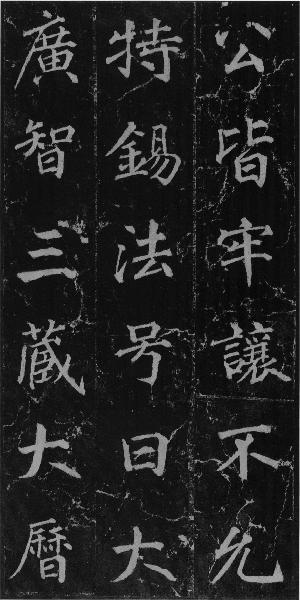 公皆牢讓不允
特錫法号曰大
廣智三藏大曆